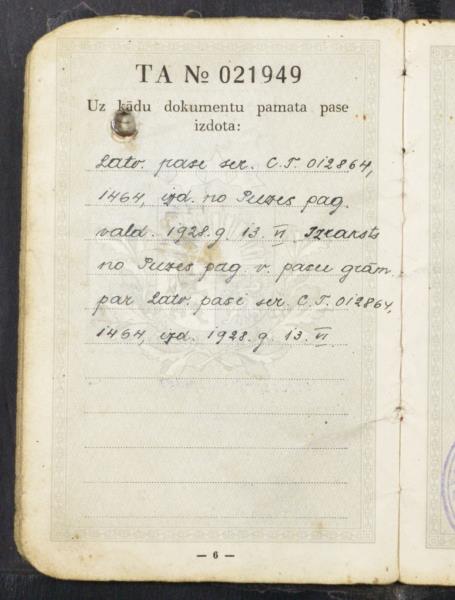 TA № 021949
Uz kādu dokumentu pamata pase
izdota:
Latv. pase ser. C.T. 012864,
1464, izd. no Puzes pag.
vald. 1928. g. 13. VI Izraksts
no Puzes pag. v. pasu grām.
par Latv. pasi ser. C.T. 012864,
1464, izd. 1928. g. 13. VI
— 6 —